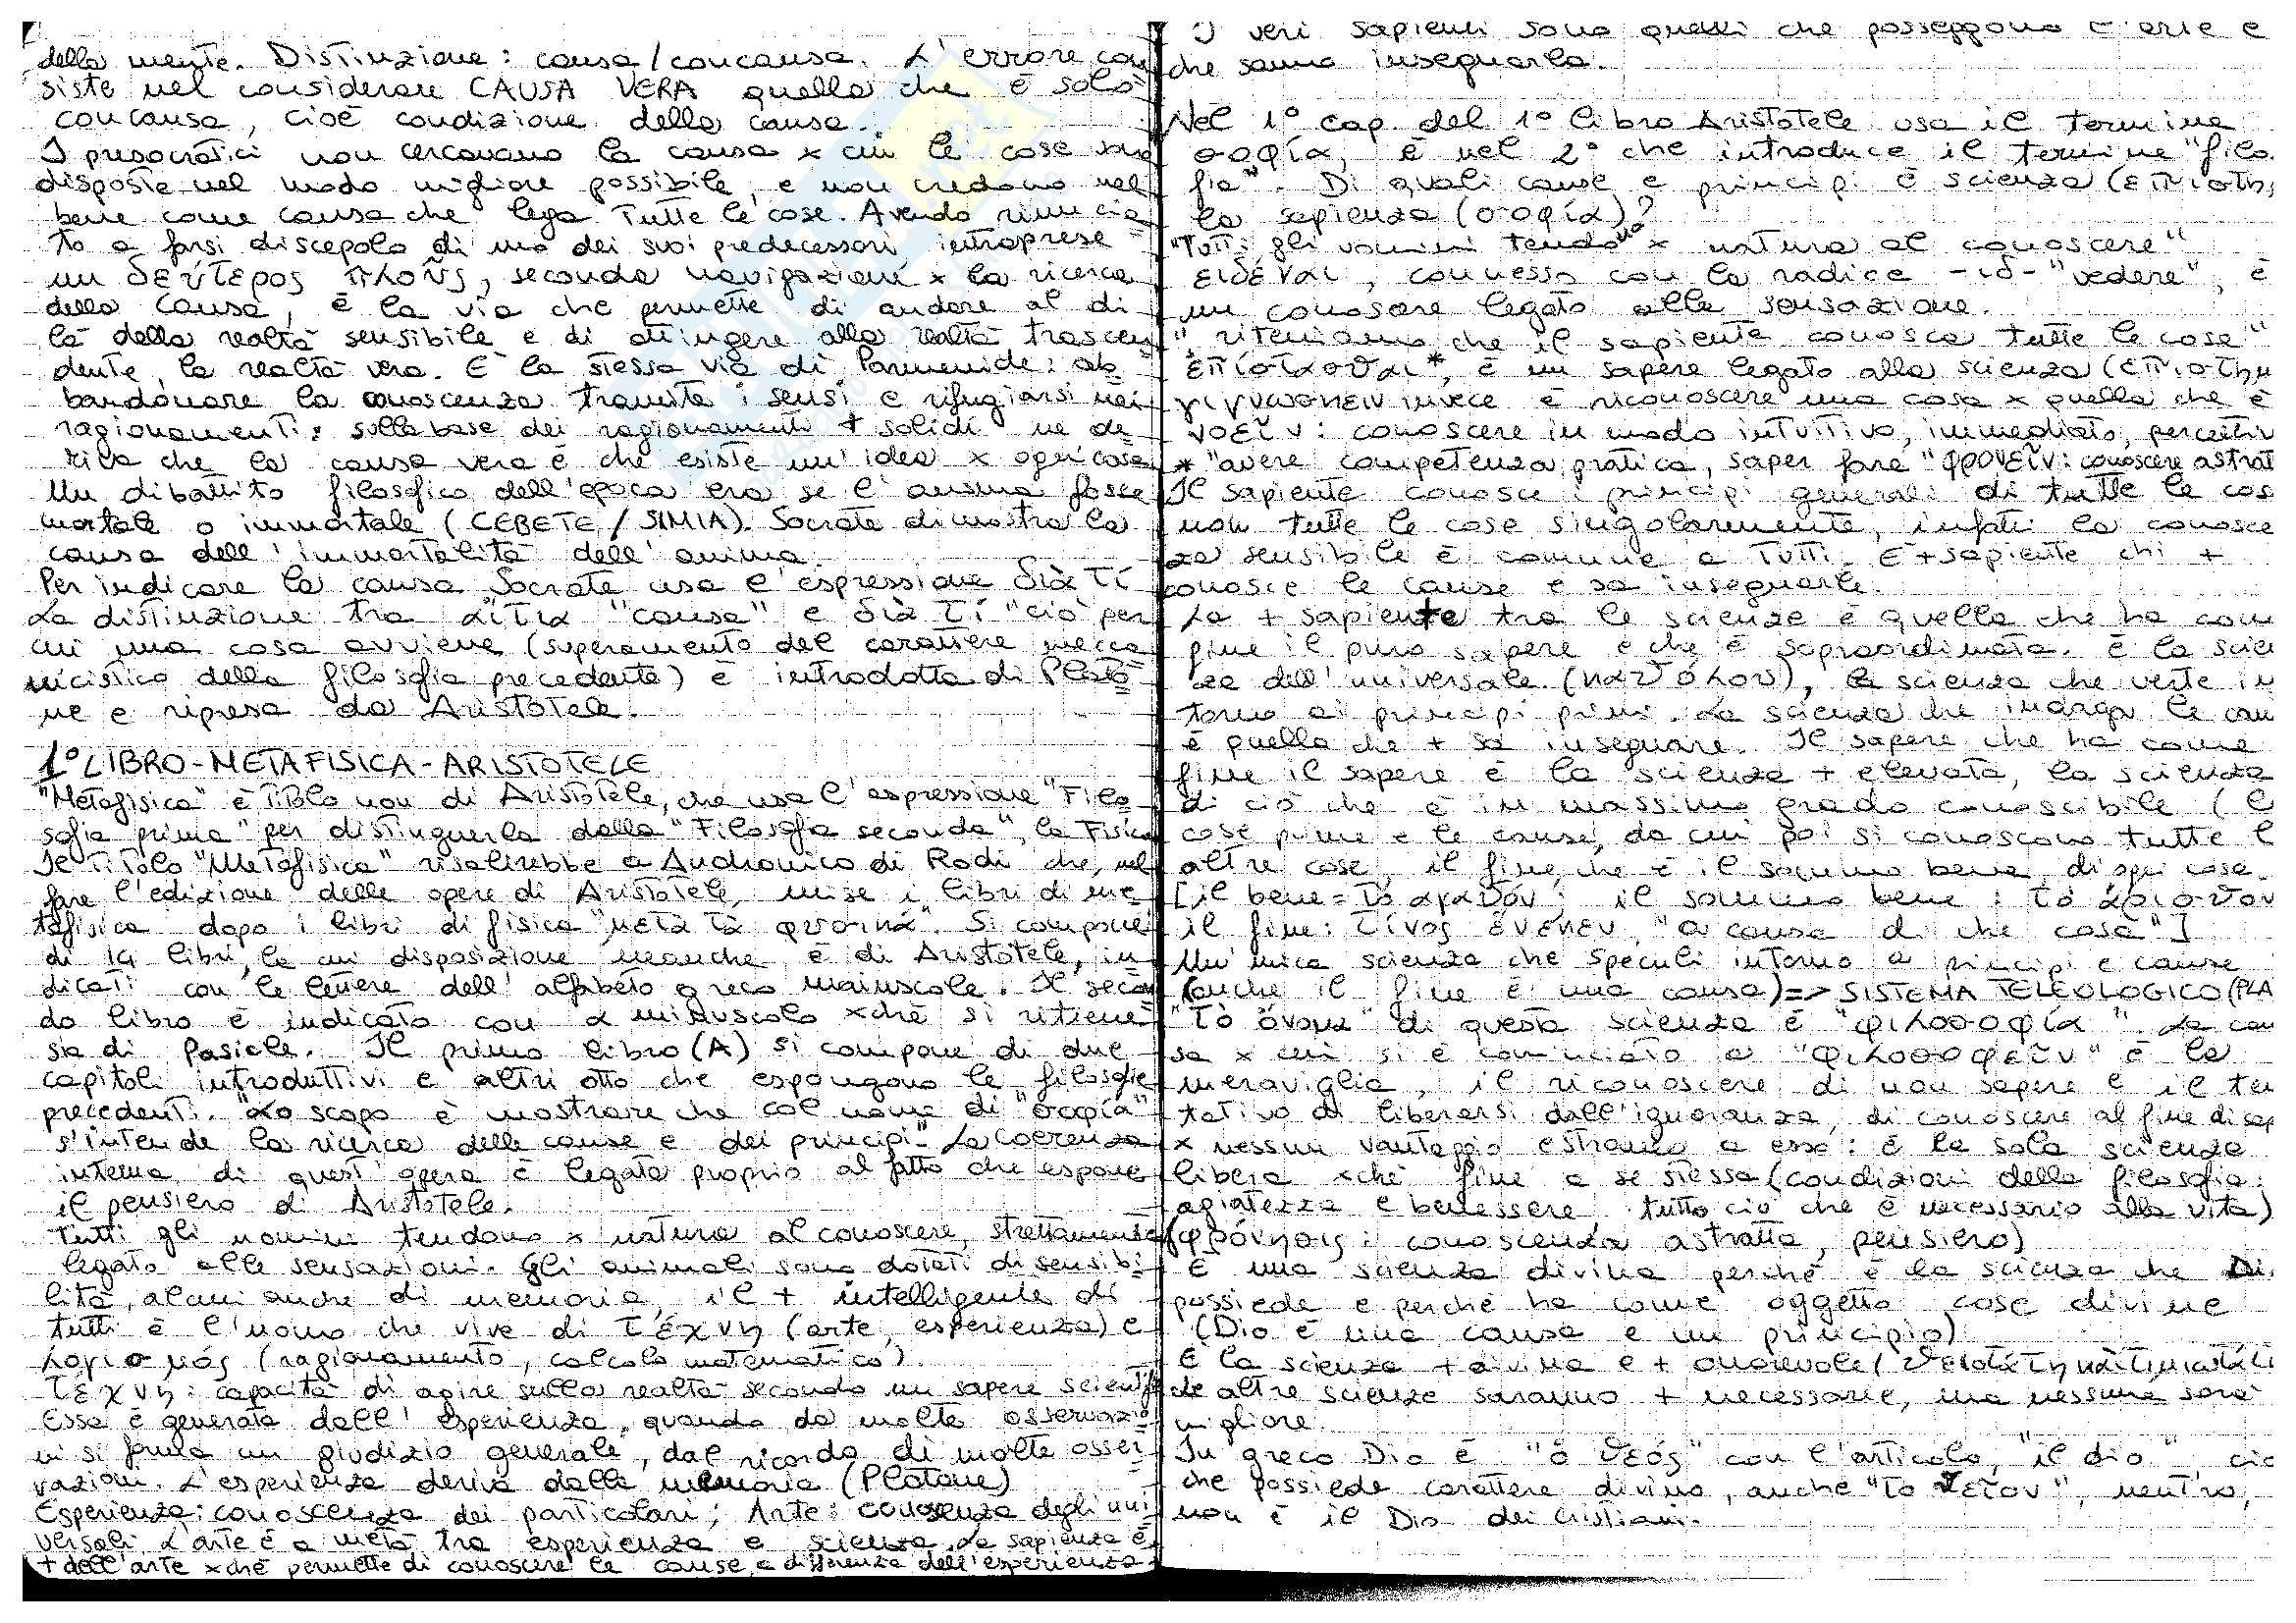 della mente. Distinzione: causa/concausa. L'errore con
siste nel considerare CAUSA VERA quella che è solo
concausa, cioè condizione della causa.
I presocratici non cercavano la causa x cui le cose sono
disposte nel modo migliore possibile, e non credono nel
bene come causa che lega tutte le cose. Avendo rinuncia
to a farsi discepolo di uno dei suoi predecessori, intraprese
un δεύτερος πλοῦς, seconda navigazione x la ricerca
della causa, è la via che permette di andare al di
là della realtà sensibile e di attingere alla realtà trascen
dente, la realtà vera. È la stessa via di Parmenide: ab
bandonare la conoscenza tramite i sensi e rifugiarsi nei
ragionamenti: sulla base dei ragionamenti + solidi ne de
riva che la causa vera è che esiste un'idea x ogni cosa
Un dibattito filosofico dell'epoca era se l'anima fosse
mortale o immortale (CEBETE/SIMIA). Socrate dimostra la
causa dell'immortalità dell'anima.
Per indicare la causa Socrate usa l'espressione διὰ τί
La distinzione tra αἰτία "causa" e διὰ τί "ciò per
cui una cosa avviene (superamento del carattere mecca
nicistico della filosofia precedente) è introdotta di Plato
ne e ripresa da Aristotele.
1° LIBRO - METAFISICA - ARISTOTELE
"Metafisica" è titolo non di Aristotele, che usa l'espressione "Filo
sofia prima" per distinguerla dalla "Filosofia seconda", la Fisica
Il titolo "Metafisica" risalirebbe a Andronico di Rodi che, nel
fare l'edizione delle opere di Aristotele, mise i libri di me
tafisica dopo i libri di fisica "μετὰ τὰ φυσικά". Si compone
di 14 libri, la cui disposizione neanche è di Aristotele, in
dicati con le lettere dell'alfabeto greco maiuscole. Il secon
do libro è indicato con α minuscolo xchè si ritiene
sia di Pasicle. Il primo libro (A) si compone di due
capitoli introduttivi e altri otto che espongono le filosofie
precedenti. "Lo scopo è mostrare che col nome di "σοφία"
s'intende la ricerca delle cause e dei principi". La coerenza
interna di quest'opera è legata proprio al fatto che espone
il pensiero di Aristotele.
Tutti gli uomini tendono x natura al conoscere, strettamente
legato alle sensazioni. Gli animali sono dotati di sensibi
lità, alcuni anche di memoria, il + intelligente di
tutti è l'uomo che vive di τέχνη (arte, esperienza) e
λογισμός (ragionamento, calcolo matematico).
τέχνη: capacità di agire sulla realtà secondo un sapere scientif
Essa è generata dall'esperienza, quando da molte osservazio
ni si formula un giudizio generale, dal ricordo di molte osser
vazioni. L'esperienza deriva dalla memoria (Platone)
Esperienza: conoscenza dei particolari; Arte: conoscenza degli uni
versali. L'arte è a metà tra esperienza e scienza. La sapienza è
+ dell'arte xchè permette di conoscere le cause, a differenza dell'esperienza
I veri sapienti sono quelli che posseggono l'arte e
che sanno insegnarla.
Nel 1° cap. del 1° libro Aristotele usa il termine
σοφία, è nel 2° che introduce il termine "filo
fia". Di quali cause e principi è scienza (ἐπιστη
la sapienza (σοφία)?
"Tutti gli uomini tendono x natura al conoscere"
εἰδέναι, connesso con la radice -ιδ- "vedere", è
un conoscere legato alle sensazione.
"riteniamo che il sapiente conosca tutte le cose"
ἐπίστασθαι*, è un sapere legato alla scienza (ἐπιστήμ
γιγνώσκειν invece è riconoscere una cosa x quella che è
νοεῖν: conoscere in modo intuitivo, immediato, percettiv
* "avere competenza pratica, saper fare" φρονεῖν: conoscere astrat
Il sapiente conosce i principi generali di tutte le cos
non tutte le cose singolarmente, infatti la conosce
za sensibile è comune a tutti. È + sapiente chi +
conosce le cause e sa insegnarle.
La + sapiente tra le scienze è quella che ha com
fine il puro sapere e che è sopraordinata. È la scien
za dell'universale (καθόλου), la scienza che verte in
torno ai principi primi. La scienza che indaga le cau
è quella che + sa insegnare. Il sapere che ha come
fine il sapere è la scienza + elevata, la scienza
di ciò che è in massimo grado conoscibile (l
cose prime e le cause, da cui poi si conoscono tutte l
altre cose, il fine, che è il sommo bene di ogni cosa.
[il bene = τὸ ἀγαθόν; il sommo bene: τὸ ἄριστον
il fine: τίνος ἕνεκεν, "a causa di che cosa"]
Un'unica scienza che speculi intorno a principi e cause
(anche il fine è una causa) => SISTEMA TELEOLOGICO (PLA
"τὸ ὄνομα" di questa scienza è "φιλοσοφία". La cau
sa x cui si è cominciato a "φιλοσοφεῖν" è la
meraviglia, il riconoscere di non sapere e il ten
tativo di liberarsi dall'ignoranza, di conoscere al fine di sap
x nessun vantaggio estraneo a esso: è la sola scienza
libera xchè fine a se stessa (condizioni della filosofia:
agiatezza e benessere, tutto ciò che è necessario alla vita)
(φρόνησις: conoscenza astratta, pensiero)
È una scienza divina perchè è la scienza che Di
possiede e perchè ha come oggetto cose divine
(Dio è una causa e un principio)
È la scienza + divina e + onorevole (θειοτάτη καὶ τιμιωτάτη
Le altre scienze saranno + necessarie, ma nessuna sarà
migliore.
In greco Dio è "ὁ θεός" con l'articolo, "il dio" cio
che possiede carattere divino, anche "τὸ θεῖον", neutro,
non è il Dio dei cristiani.